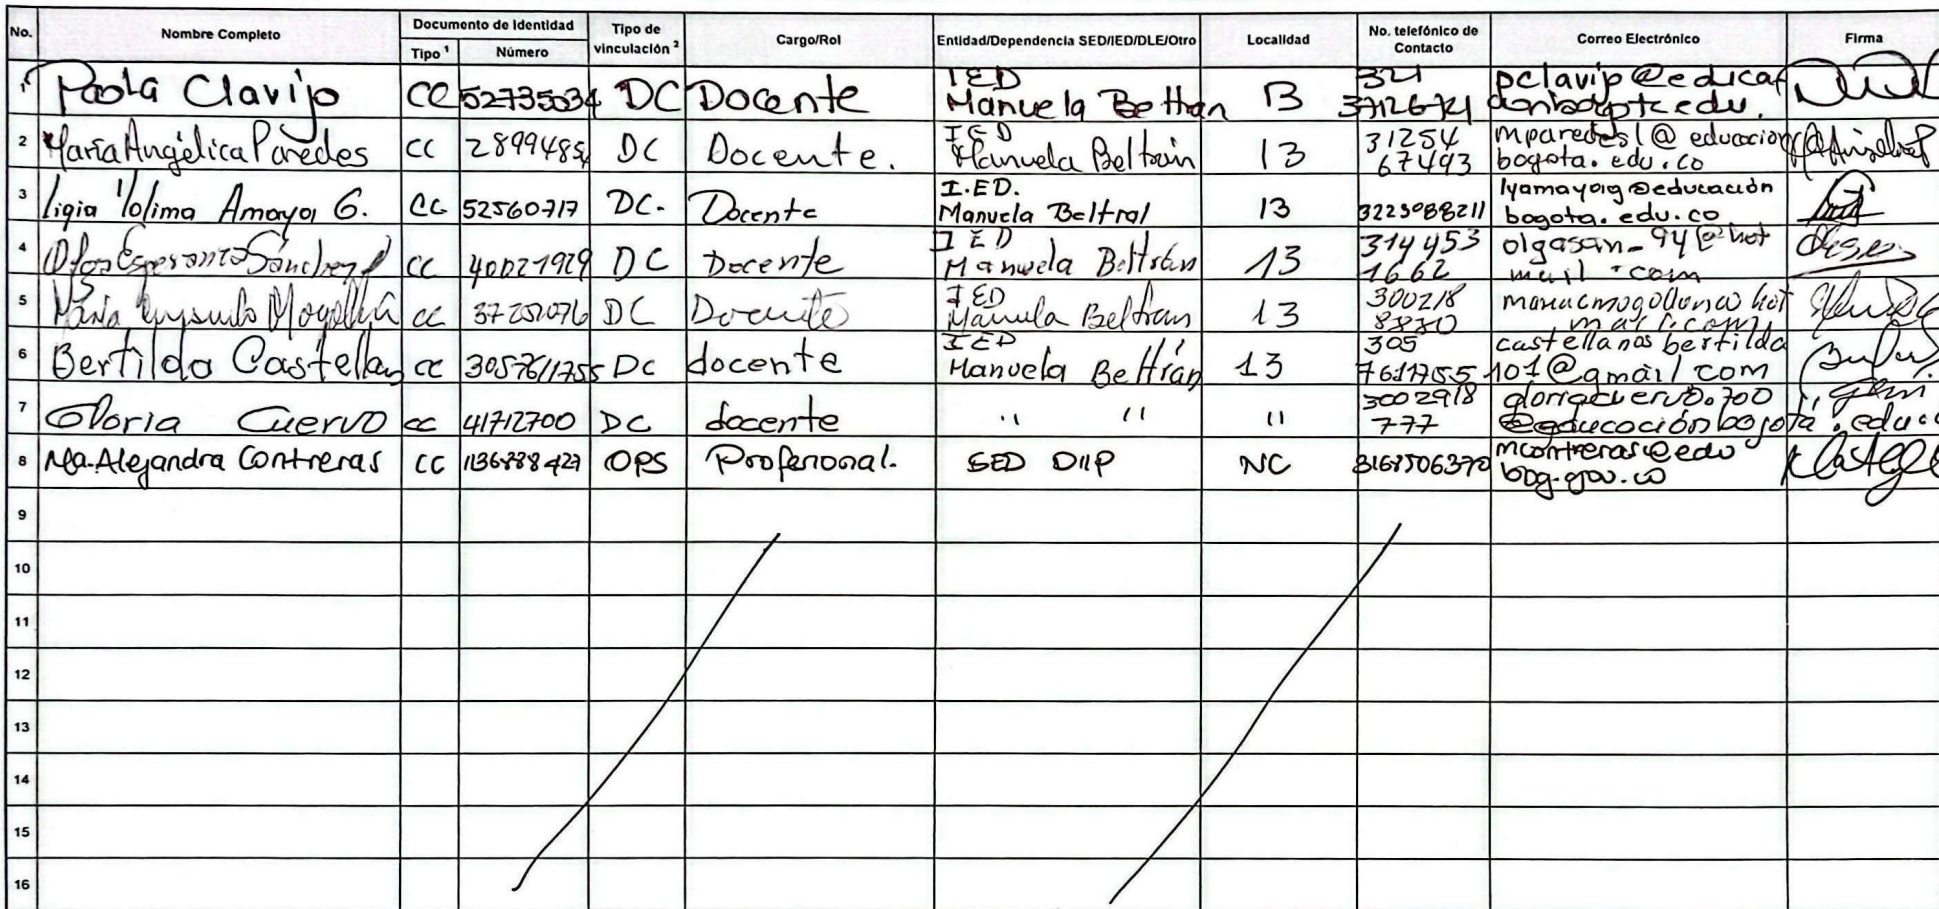 No. Nombre Completo Documento de Identidad Tipo de vinculación ² Cargo/Rol Entidad/Dependencia SED/IED/DLE/Otro Localidad No. telefónico de Contacto Correo Electrónico Firma
Tipo ¹ Número
1 Paola Clavijo CC 52735034 DC Docente IED Manuela Beltran 13 321
2 María Angélica Paredes CC 28994854 DC Docente. IED Manuela Beltrán 13 31254 67493 mparedes1@educacion bogota.edu.co
3 Ligia Yolima Amaya G. CC 52560717 DC. Docente I.ED. Manuela Beltral 13 3223088211 lyamayag@educación bogota.edu.co
4 Olga Esperanza Sánchez CC 40021929 DC Docente IED Manuela Beltrán 13 314453 1662 olgasan_94@hot mail.com
5 María DC Docente IED Manuela Beltran 13 300218 8880
6 Bertilda Castellan CC 3057611755 DC docente IED Manuela Beltrán 13 305 7611755 castellanosbertilda 101@gmail com
7 Gloria Cuervo CC 41712700 DC docente " " " 3002918 777 gloriacuervo.700 @educaciónbogotá.edu.c
8 Ma. Alejandra Contreras CC OPS Profesional. SED NC 3168506370 mcontreras@edu bog.gov.co
9
10
11
12
13
14
15
16